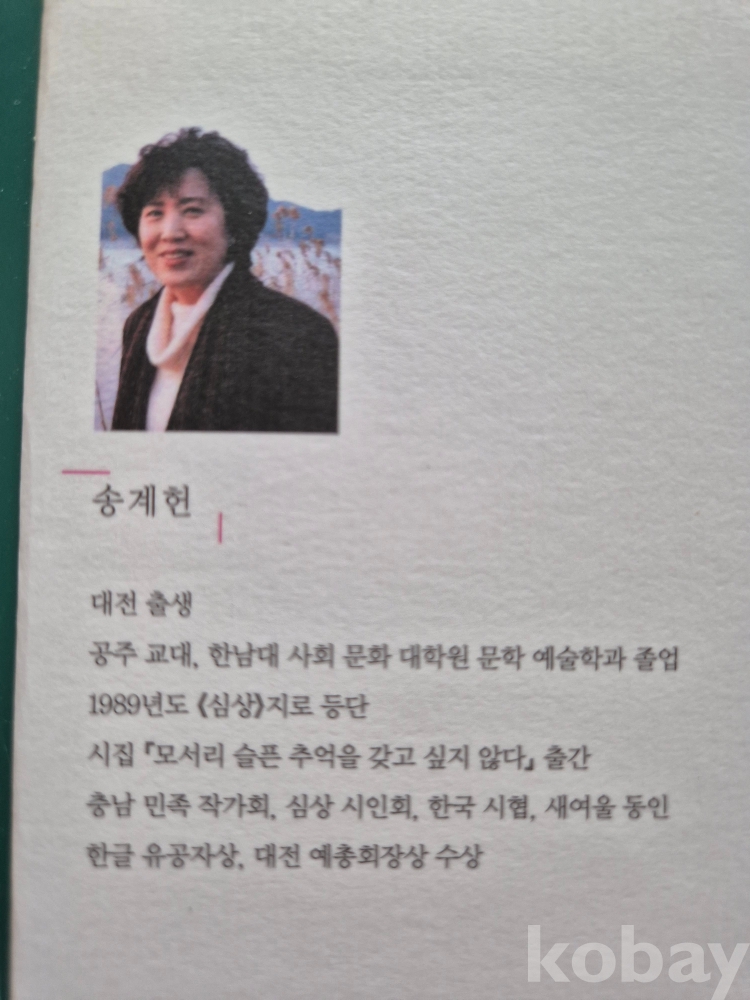 송계헌
대전 출생
공주 교대, 한남대 사회 문화 대학원 문학 예술학과 졸업
1989년도 《심상》지로 등단
시집 『모서리 슬픈 추억을 갖고 싶지 않다』 출간
충남 민족 작가회, 심상 시인회, 한국 시협, 새여울 동인
한글 유공자상, 대전 예총회장상 수상
kobay